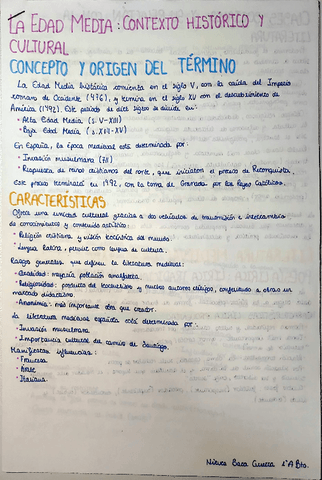 LA EDAD MEDIA: CONTEXTO HISTÓRICO Y
CULTURAL
CONCEPTO Y ORIGEN DEL TÉRMINO
La Edad Media histórica comienza en el siglo V, con la caída del Imperio
romano de Occidente (476), y termina en el siglo XV con el descubrimiento de
América (1492). Este periodo de diez siglos se divide en:
· Alta Edad Media (s. V-XIII)
· Baja Edad Media (s. XIV-XV)
En España, la época medieval está determinada por:
· Invasión musulmana (711)
· Respuesta de reinos cristianos del norte, que iniciaron el proceso de Reconquista.
Este proceso terminará en 1492, con la toma de Granada por los Reyes Católicos.
CARACTERÍSTICAS
Ofrece una unidad cultural gracias a dos vehículos de transmisión e intercambio
de conocimientos y contenido artístico:
· Religión cristiana y visión teocéntrica del mundo.
· Lengua latina, pervive como lengua de cultura.
Rasgos generales que definen la literatura medieval:
· Oralidad: mayoría población analfabeta.
· Religiosidad: producto del teocentrismo y muchos autores clérigos, confiriendo a obras un
marcado didactismo.
· Anonimia: más importante obra que creador.
La literatura medieval española está determinada por:
· Invasión musulmana
· Importancia cultural del camino de Santiago.
Manifiestan influencias:
· Francesa
· Árabe
· Italiana.
1ºA Bto.